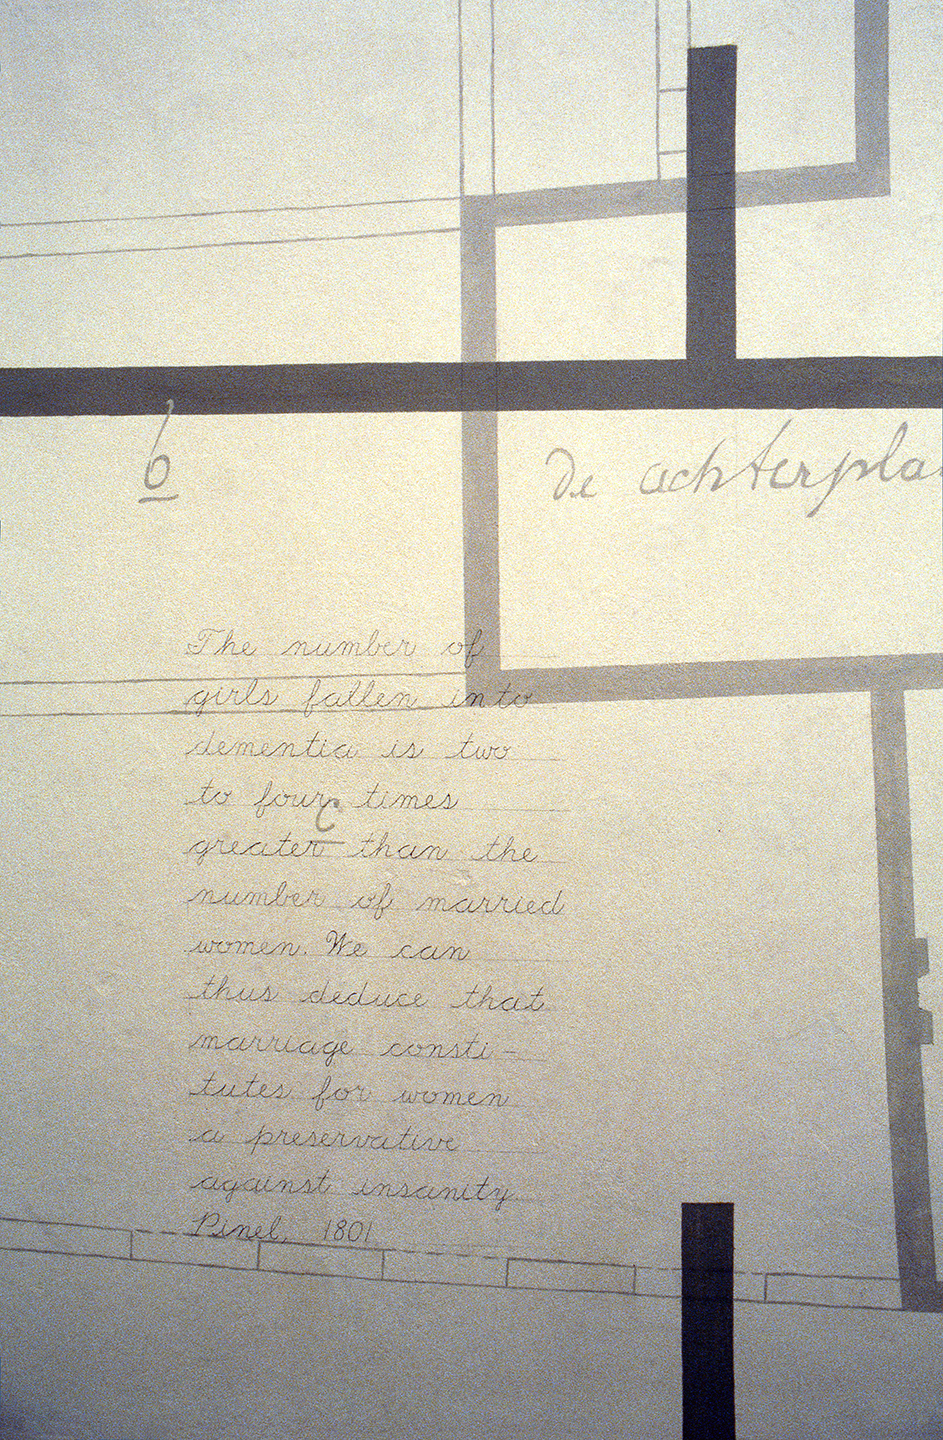 b
de achterpla
The number of
girls fallen into
dementia is two
to four times
c
greater than the
number of married
women. We can
thus deduce that
marriage consti-
tutes for women
a preservative
against insanity
Pinel, 1801